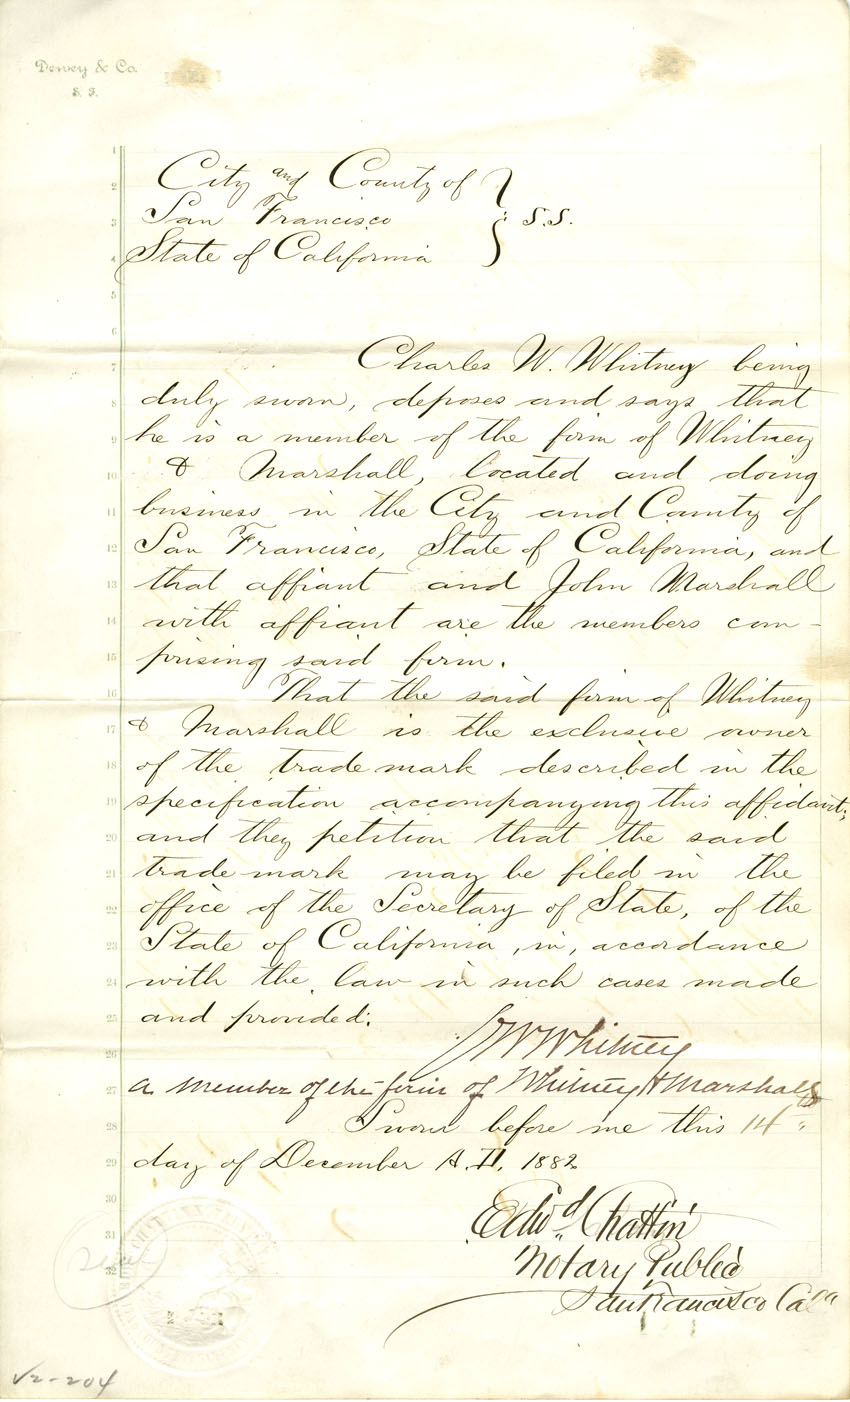 Denny & Co.
S. F.
City and County of
San Francisco } S.S.
State of California
Charles W. Whitney being
duly sworn, deposes and says that
he is a member of the firm of Whitney
& Marshall, located and doing
business in the City and County of
San Francisco, State of California, and
that affiant and John Marshall
with affiant are the members com-
prising said firm.
That the said firm of Whitney
& Marshall is the exclusive owner
of the trade mark described in the
specification accompanying this affidavit;
and they petition that the said
trade mark may be filed in the
office of the Secretary of State, of the
State of California, in, accordance
with the law in such cases made
and provided.
C W Whitney
a member of the firm of Whitney & Marshall
Sworn before me this 14th
day of December A.D. 1882
Edwd Chattin
Notary Public
San Francisco Cala
Seal
V2-204
1
2
3
4
5
6
7
8
9
10
11
12
13
14
15
16
17
18
19
20
21
22
23
24
25
26
27
28
29
30
31
32